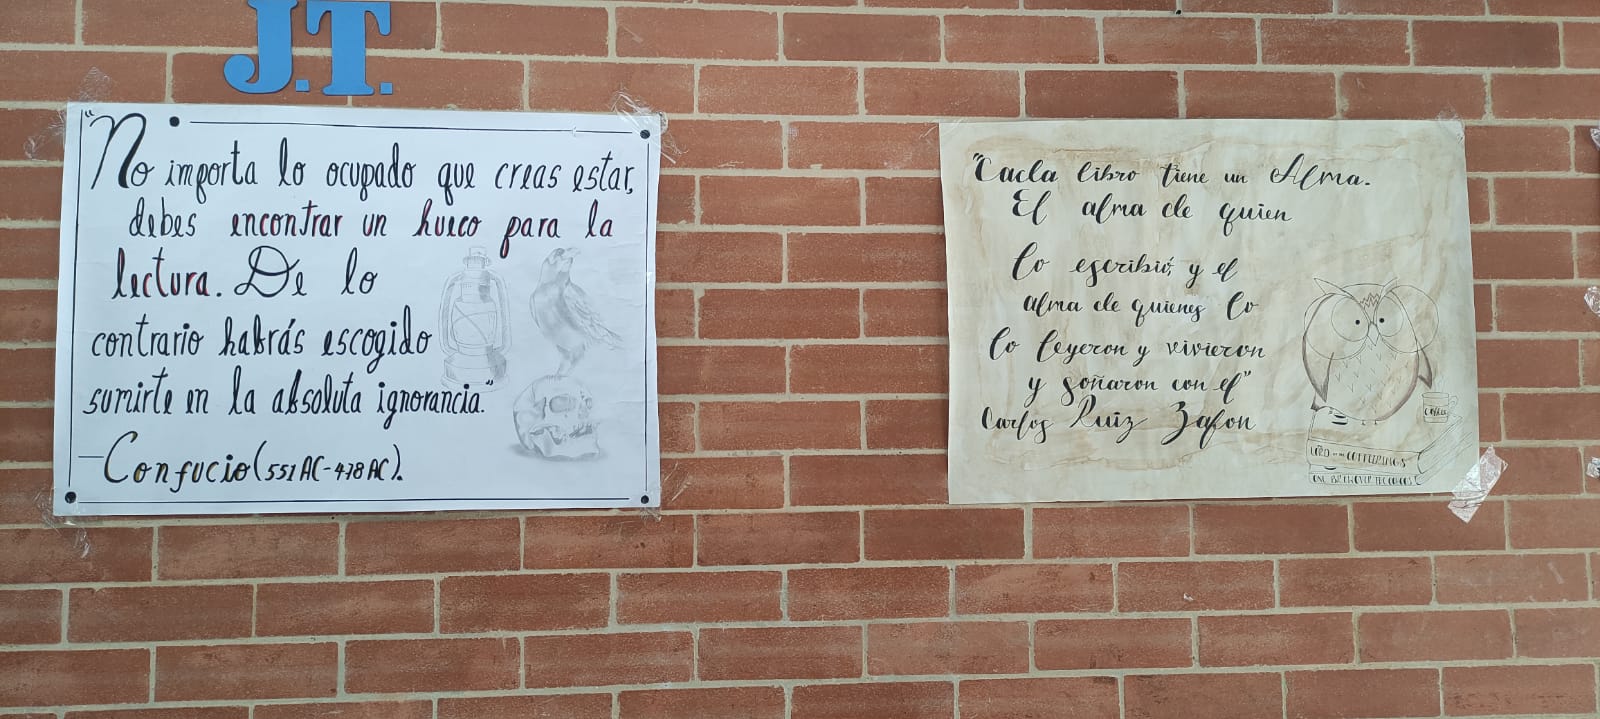 J.T.
"No importa lo ocupado que creas estar,
debes encontrar un hueco para la
lectura. De lo
contrario habrás escogido
sumirte en la absoluta ignorancia."
—Confucio (551 AC-478 AC).
"Cada libro tiene un Alma.
El alma de quien
lo escribió, y el
alma de quienes lo
lo leyeron y vivieron
y soñaron con el"
Carlos Ruiz Zafon
COFFEE
LORD OF THE COFFEERINGS
ONE BREWOVER